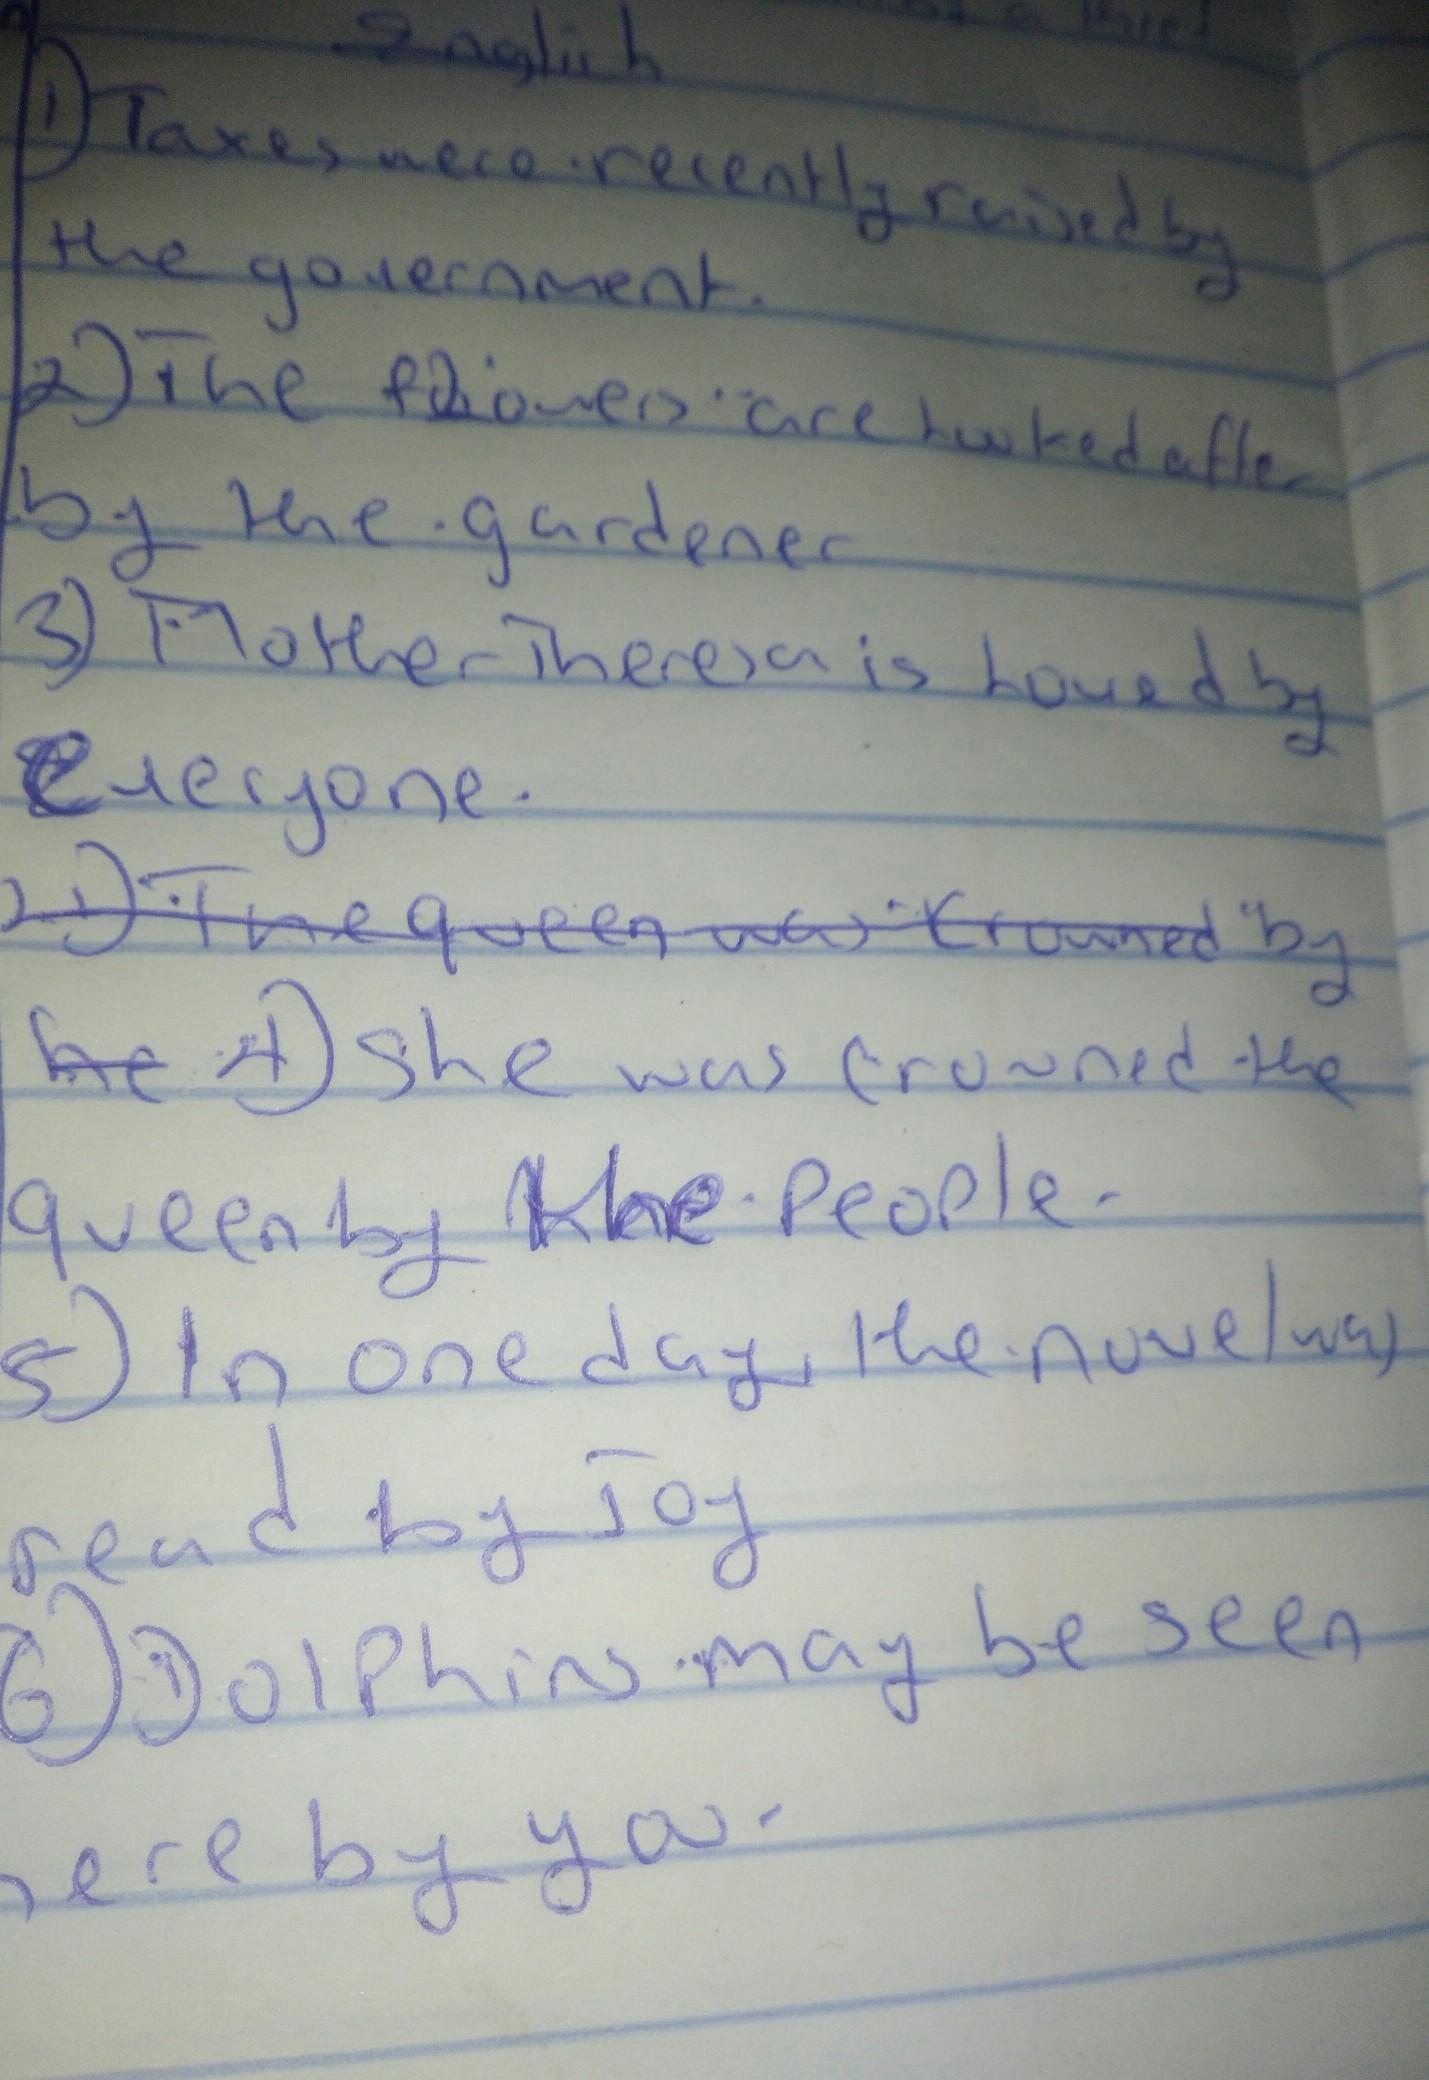 English
1) Taxes were recently raised by
the government.
2) The flowers are looked after
by the gardener
3) Mother Theresa is loved by
everyone.
The queen was crowned by
he 4) She was crowned the
queen by the people.
5) In one day, the novel was
read by Joy
6) Dolphins may be seen
here by you.